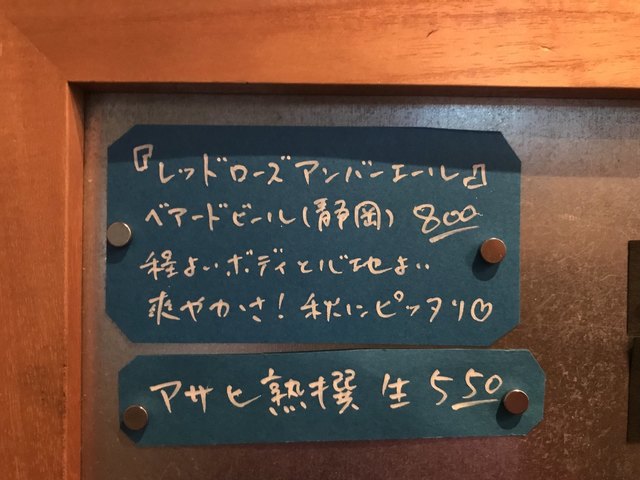 『レッドローズアンバーエール』
ベアードビール(静岡) 800
程よいボディと心地よい
爽やかさ!秋にピッタリ♡
アサヒ熟撰 生 550